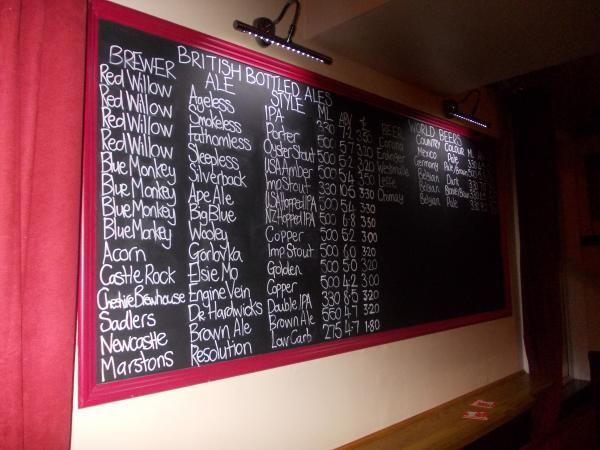 BRITISH BOTTLED ALES
BREWER ALE STYLE ML ABV £
Red Willow Ageless IPA 330 7.2
Red Willow Smokeless Porter 500 5.7
Red Willow Fathomless Oyster Stout 500 5.2
Red Willow Sleepless USA Amber
Blue Monkey Silverback Imp Stout 330 10.5 3.50
Blue Monkey Ape Ale USA Hopped IPA 500
Blue Monkey Big Blue NZ Hopped IPA 500 6.8 3.50
Blue Monkey Wooley Copper 500 5.2 3.00
Acorn Gorlovka Imp Stout 500 6.0 3.20
Castle Rock Elsie Mo Golden 500 5.0 3.20
Creative Brewhouse Engine Vein Copper 500 4.2 3.00
Sadlers Dr. Hardwicks Double IPA 330 8.5 3.20
Newcastle Brown Ale Brown Ale 550 4.7 3.20
Marstons Resolution Low Carb 275 4.7 1.80
WORLD BEERS
BEER COUNTRY COLOUR ML
Corona Mexico Pale
Erdinger Germany Pale/Brown
Westmalle Belgian Dark
Belgian
Chimay Belgian Pale